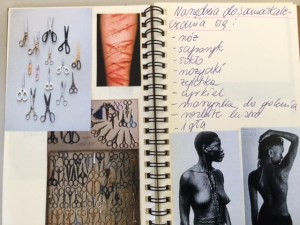 Narzędzia do samookale-
czania się:
- nóż
- scyzoryk
- szkło
- nożyczki
- żyletka
- cyrkiel
- maszynka do golenia
- rozbite lustro
- igła